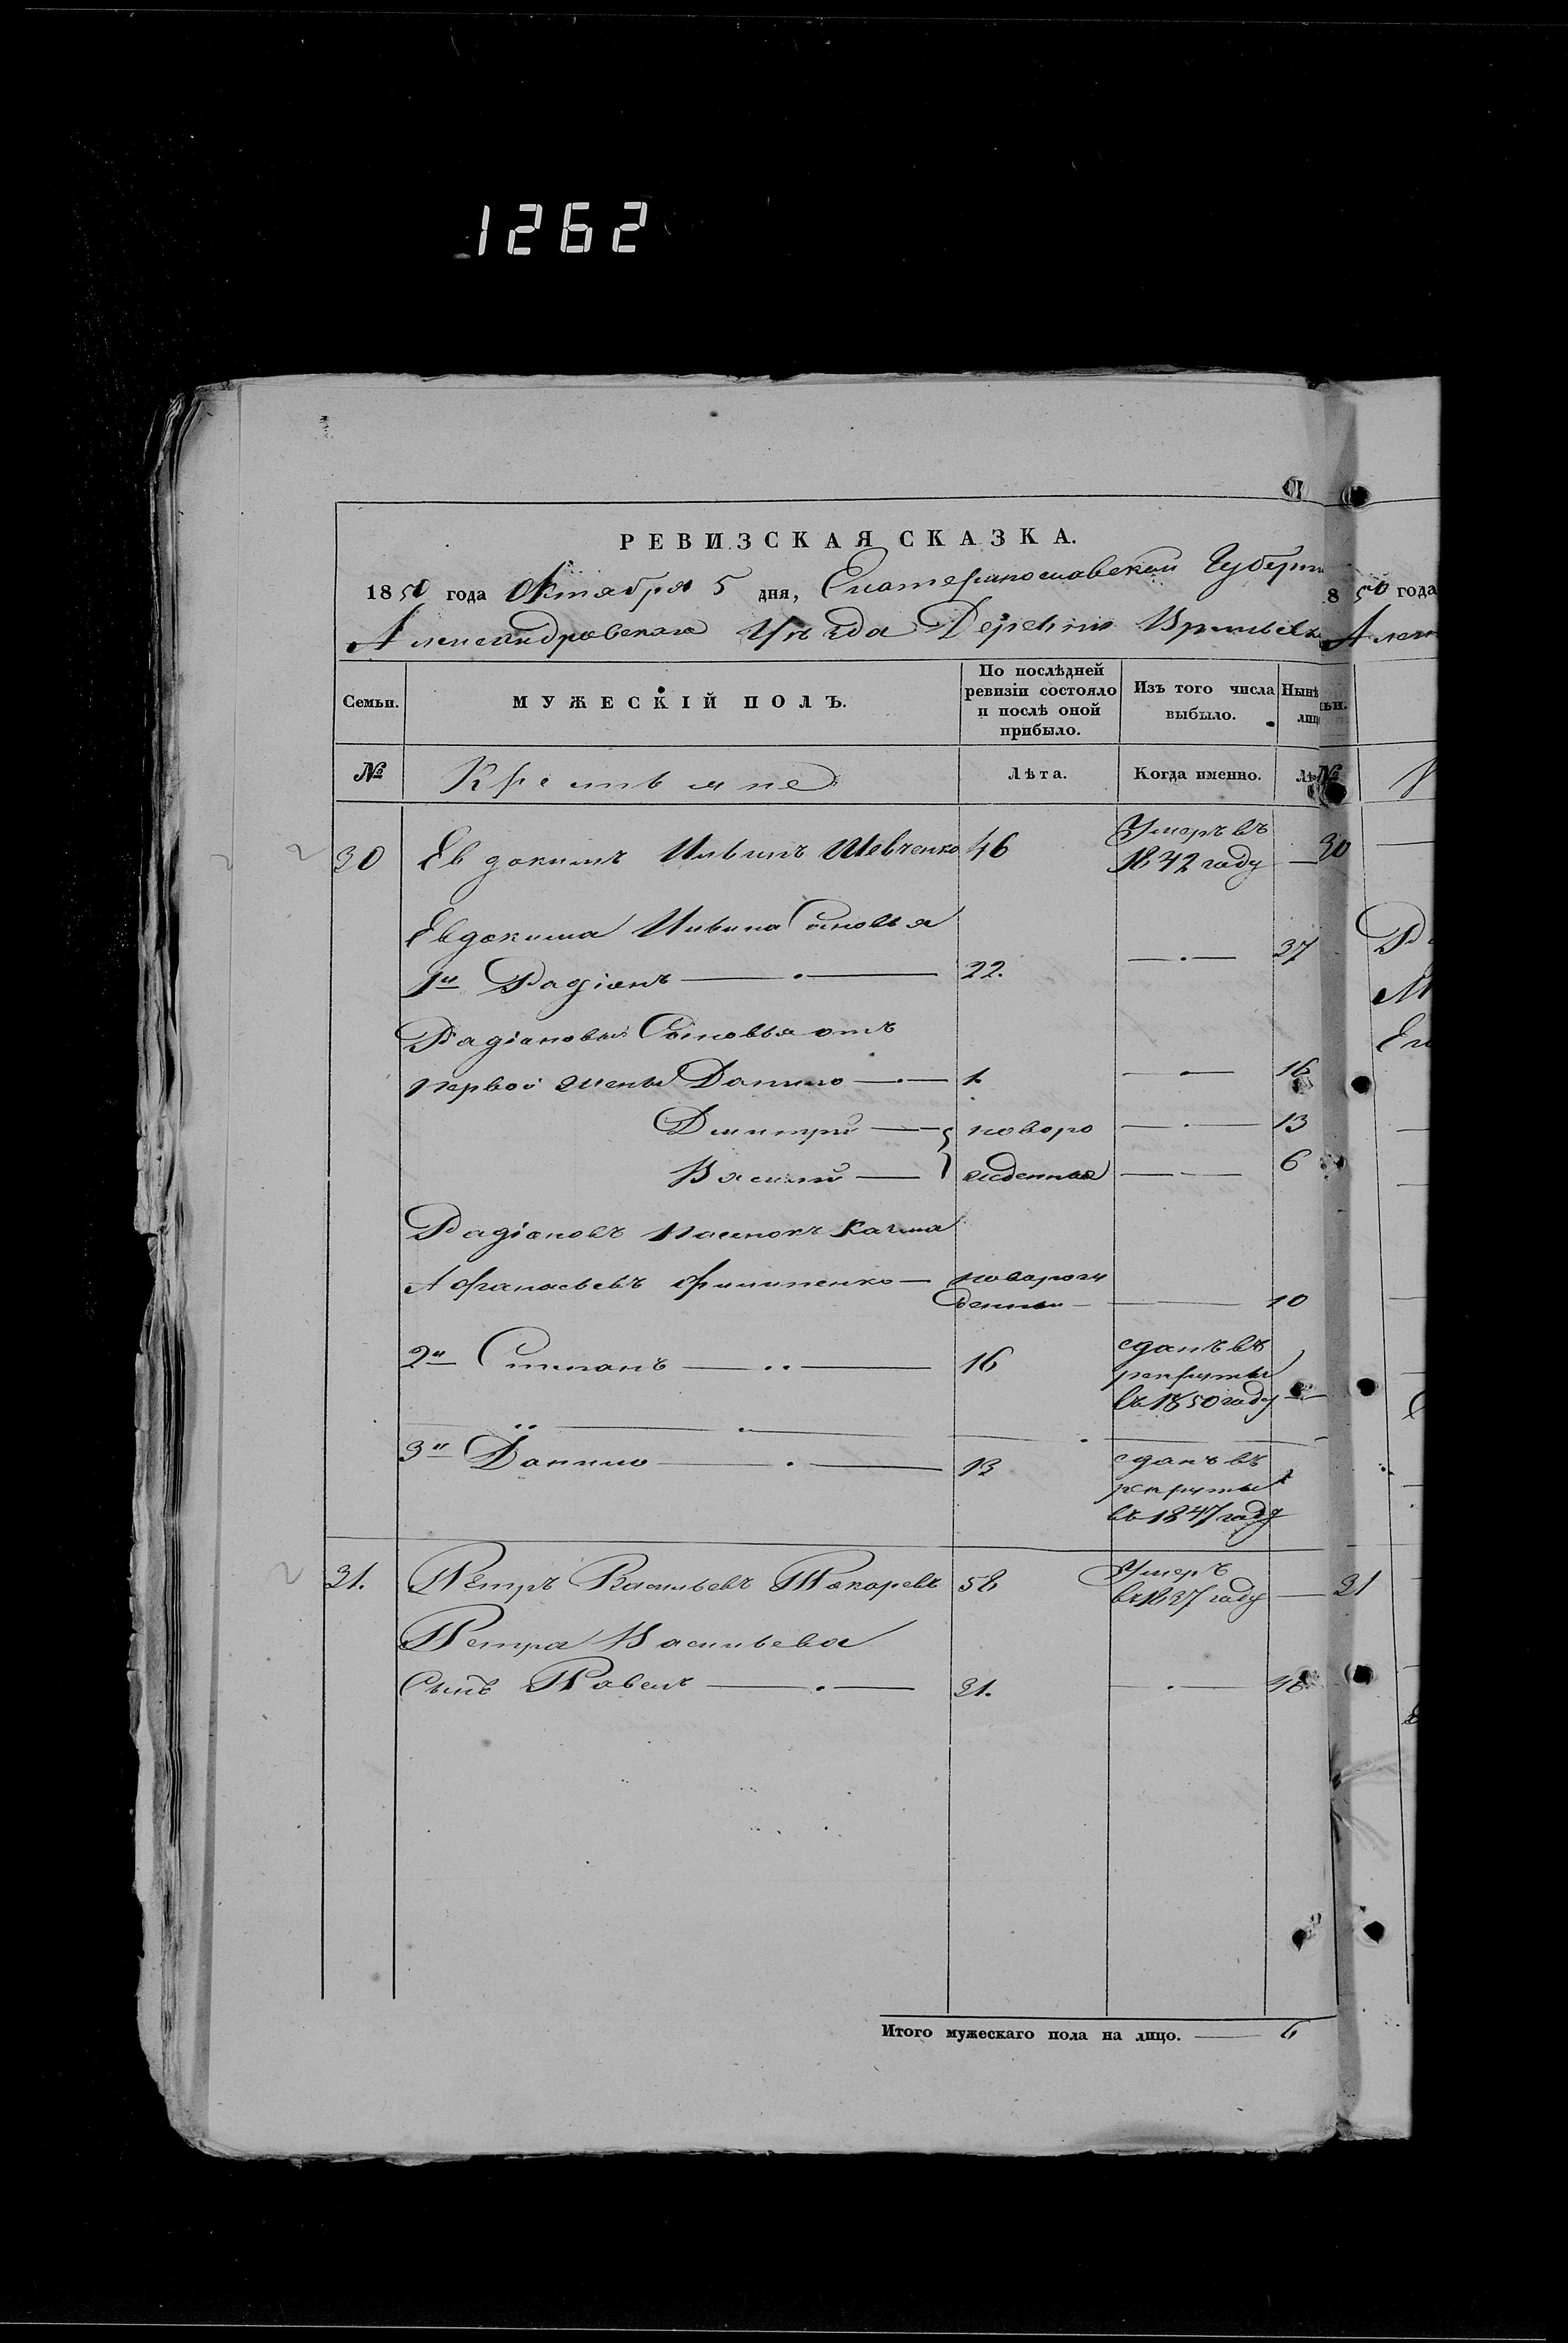 1262
РЕВИЗСКАЯ СКАЗКА.
1850 года Октября 5 дня, Екатеринославской Губерн
Александровскаго Уѣзда Деревни
8 50 года
Семьи.
МУЖЕСКІЙ ПОЛЪ.
По послѣдней ревизіи состояло и послѣ оной прибыло.
Изъ того числа выбыло.
Нынѣ лиц
№
Крестьяне
Лѣта.
Когда именно.
№
30 Евдокимъ Шевченко 46 Умеръ въ 1842 году — 30
Евдокима Сыновья
1й Радіонъ 22. 37
Радіоновы Сыновья отъ
первой жены Данило 1. 16
Дмитрій новоро 13
Василій жденныя 6
Радіоновъ пасынокъ
Афанасьевъ Филипенко новорож
денный 10
2й Степанъ 16 сданъ въ рекруты въ 1850 году
3й Данило 13 сданъ въ рекруты въ 1847 году
31. Петръ Васильевъ Токаревъ 58 Умеръ въ 1837 году — 31
Петра Васильева
Сынъ Павелъ 31.
Итого мужескаго пола на лицо. — 6